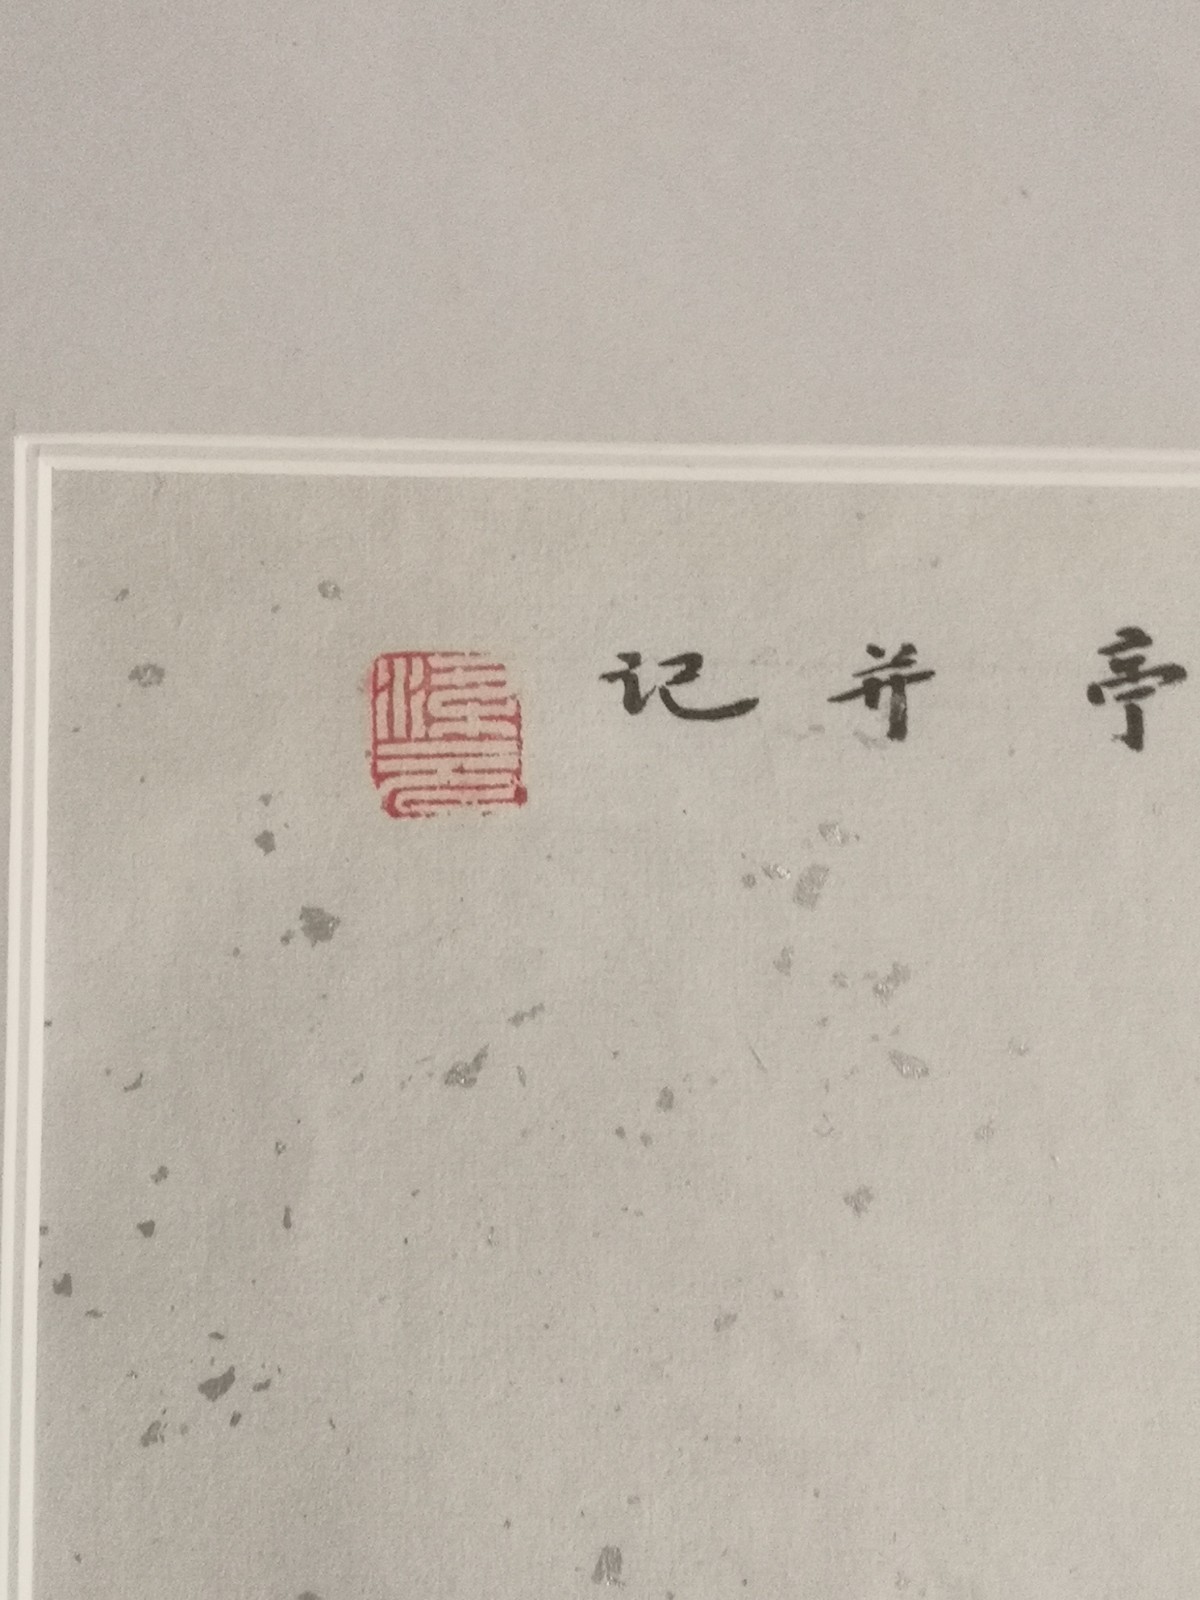 亭
并
记